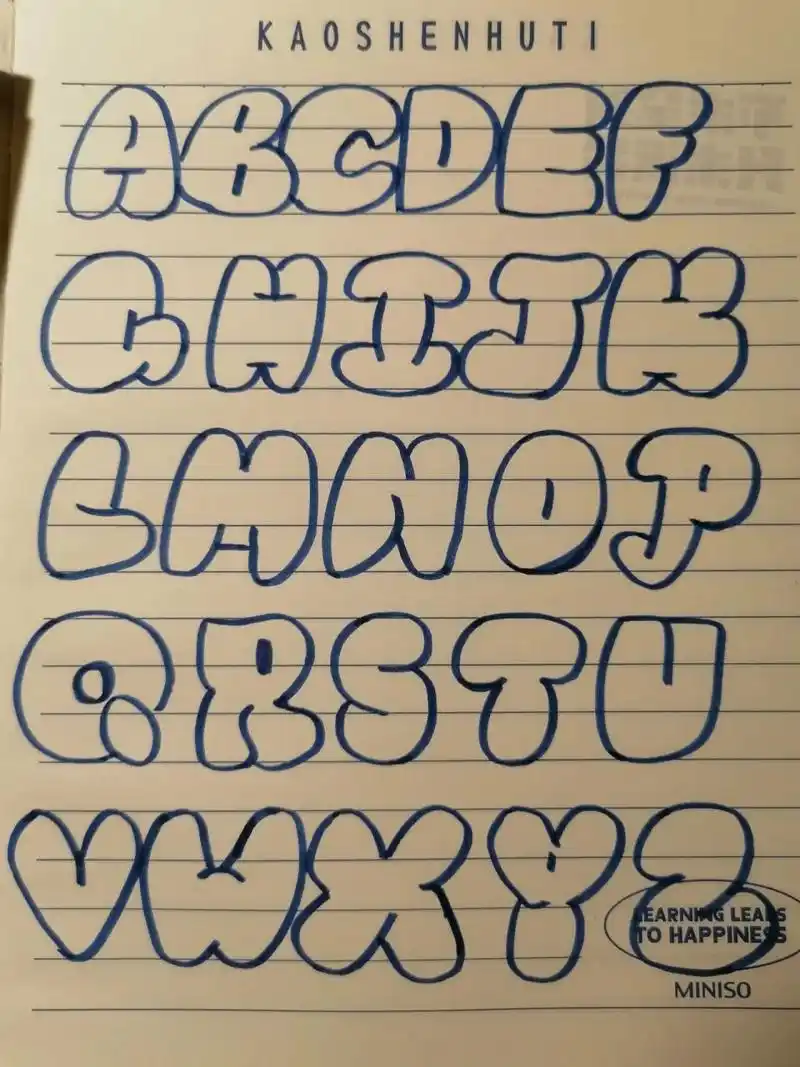 KAOSHENHUTI
ABCDEF
GHIJK
LMNOP
QRSTU
VWXYZ
LEARNING LEADS
TO HAPPINESS
MINISO